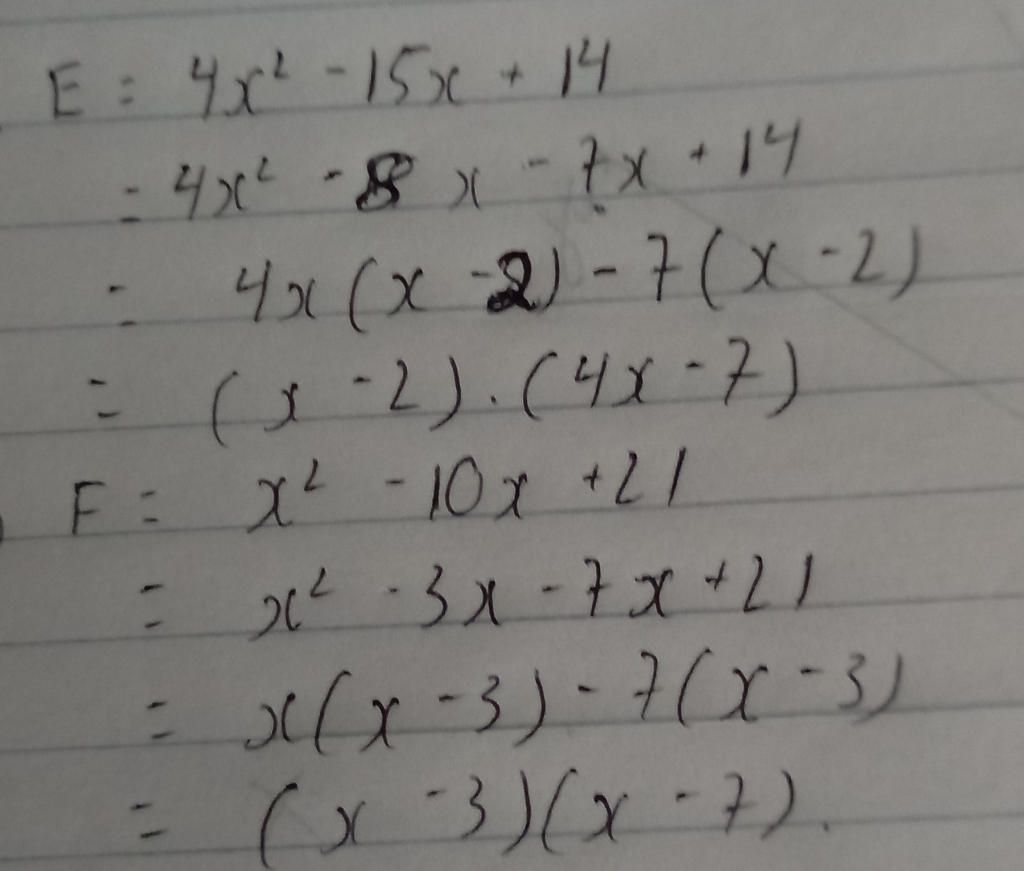 E = 4x² - 15x + 14
= 4x² - 8x - 7x + 14
= 4x(x - 2) - 7(x - 2)
= (x - 2).(4x - 7)
F = x² - 10x + 21
= x² - 3x - 7x + 21
= x(x - 3) - 7(x - 3)
= (x - 3)(x - 7).